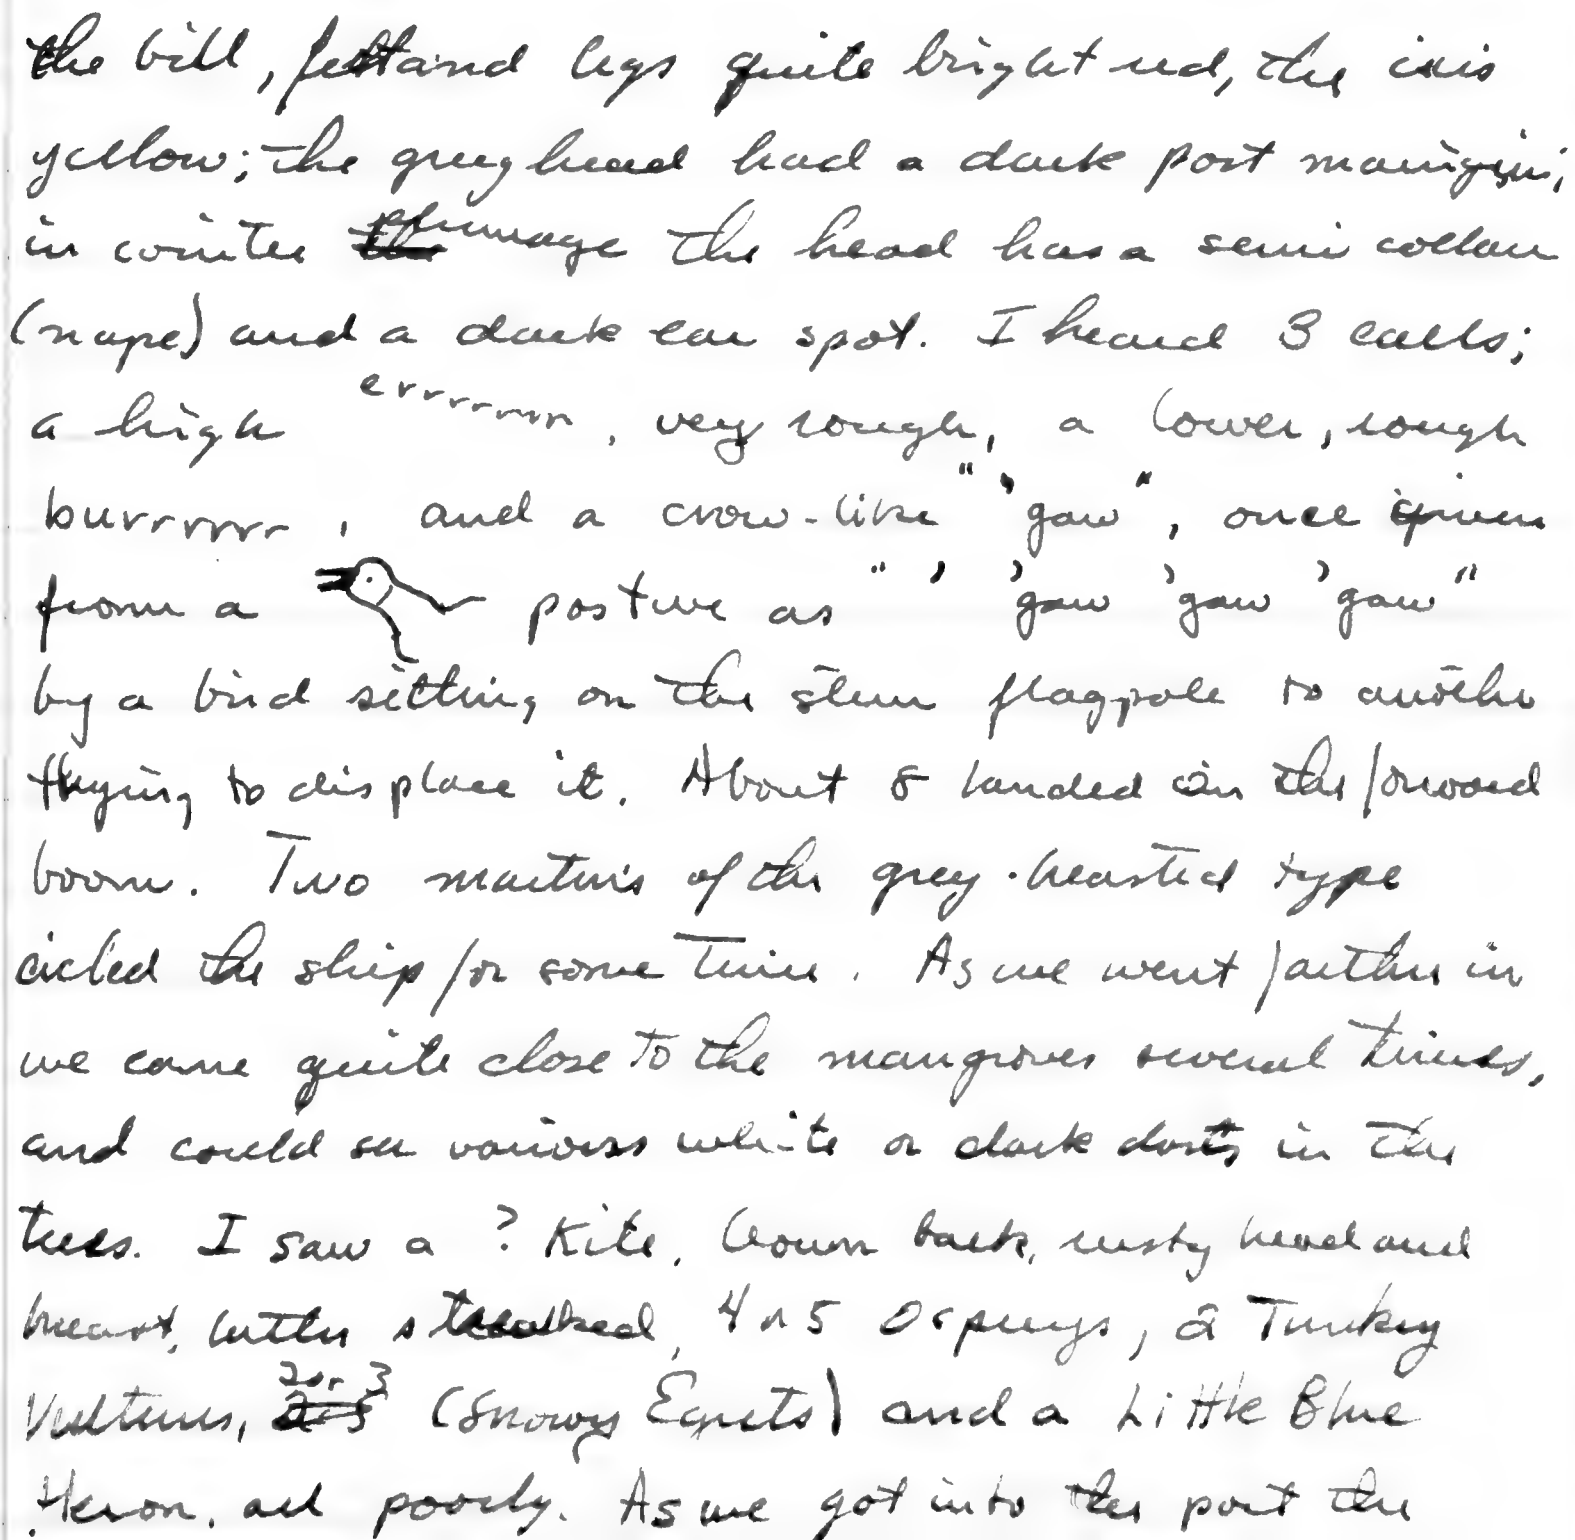 the bill, feet and legs quite bright red, the iris
yellow; the grey head had a dark post margin;
in winter plumage the head has a semi collar
(nape) and a dark ear spot. I heard 3 calls;
a high errrrrrrr, very rough, a lower, rough
burrrrrr, and a crow-like "'gaw", once given
from a posture as "' 'gaw 'gaw 'gaw"
by a bird sitting on the stern flagpole to another
trying to displace it. About 8 landed on the forward
boom. Two martins of the grey-breasted type
circled the ship for some time. As we went farther in
we came quite close to the mangroves several times,
and could see various white or dark dots in the
trees. I saw a ? Kite, brown back, rusty head and
breast, latter streaked, 4 or 5 Ospreys, 2 Turkey
Vultures, 2 or 3 (Snowy Egrets) and a Little Blue
Heron, all poorly. As we got into the port the